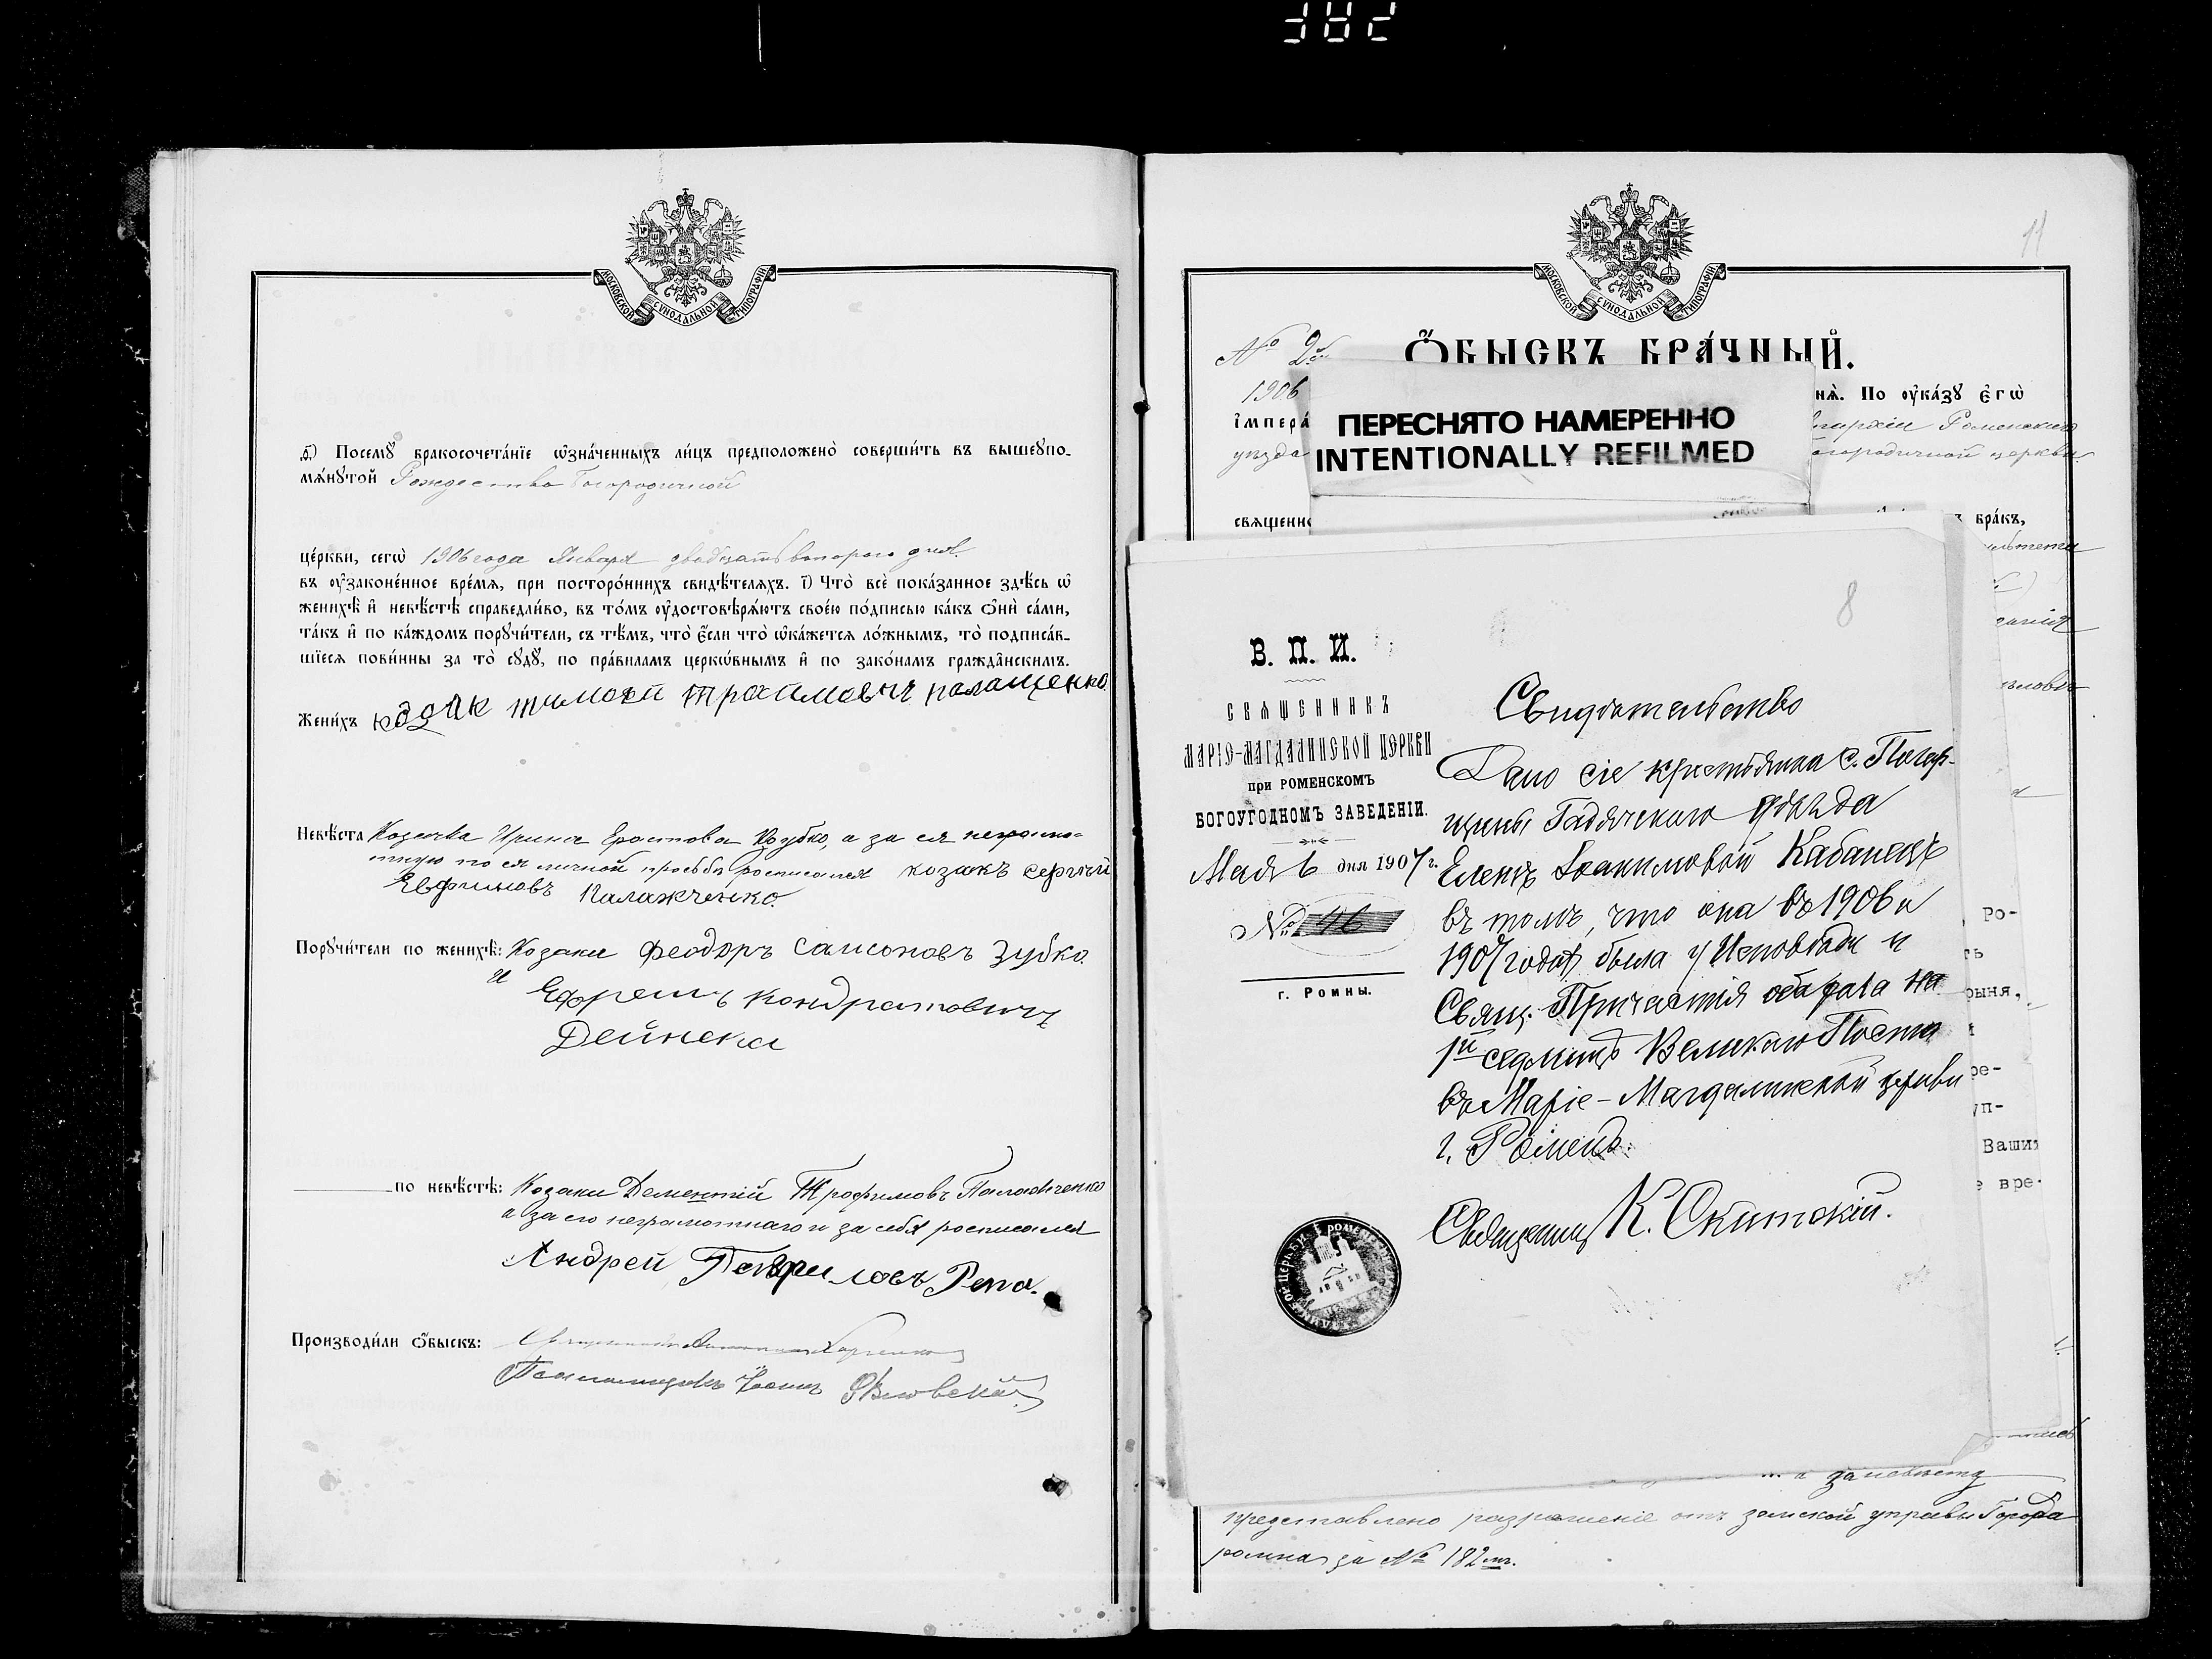 382
МОСКОВСКОЙ СУНОДАЛЬНОЙ ТИПОГРАФІИ
ѕ҃) Посемꙋ̀ бракосочета́нїе ѡ҆зна́ченныхъ ли́цъ предположено̀ соверши́ть въ вышеꙋпо-
мѧ́нꙋтой Рождество Богородичной
це́ркви, сегѡ̀ 1906 года Января двадцать второго дня.
въ оу҆законе́нное вре́мѧ, при посторо́ннихъ свидѣ́телѧхъ. і҃) Что̀ всѐ пока́занное здѣ́сь ѡ҆
женихѣ̀ и҆ невѣ́стѣ справедли́во, въ то́мъ оу҆достовѣрѧ́ютъ свое́ю по́дписью ка́къ ѻ҆нѝ са́ми,
та́къ и҆ по ка́ждомъ порꙋчи́тели, съ тѣ́мъ, что̀ є҆́сли что̀ ѡ҆ка́жетсѧ ло́жнымъ, то̀ подписа́в-
шїесѧ пови́нны за то̀ сꙋдꙋ̀, по пра́виламъ церкѡ́внымъ и҆ по зако́намъ гражда́нскимъ.
Жени́хъ козак тимофй трахимович палащенко
Невѣ́ста Козачка Ирина Ерастова Зубко, а за ея неграмо-
тную по ея личной просьбе росписался козакъ сергѣй
Евфимовъ Палажченко.
Порꙋчи́тели по женихѣ̀: Козаки Феодоръ Самсоновъ Зубко
и Ефремъ Кондратовичъ
Дейнека
по невѣ́стѣ: Козаки Дементій Трофимовъ Палажченко
а за его неграмотнаго и за себя росписался
Андрей Гавриловъ Репа.
Производи́ли ѻ҆́быскъ: Священникъ
Псаломщикъ
МОСКОВСКОЙ СУНОДАЛЬНОЙ ТИПОГРАФІИ
11
№ 2й
Ѻ҆́БЫСКЪ БРА́ЧНЫЙ.
1906
нѧ̀. По оу҆ка́зꙋ є҆гѡ̀
і҆мпера́
епархіи Роменскаго
уѣзда
огородичной церкви
свѧщенно
бра́къ,
ПЕРЕСНЯТО НАМЕРЕННО
INTENTIONALLY REFILMED
8
В. П. И.
СВЯЩЕННИКЪ
МАРІЕ-МАГДАЛИНСКОЙ ЦЕРКВИ
при РОМЕНСКОМЪ
БОГОУГОДНОМЪ ЗАВЕДЕНІИ.
Мая 6 дня 1907 г.
№ 46
г. Ромны.
Свидѣтельство
Дано сіе крестьянкѣ с. Погар-
щины Гадячскаго уѣзда
Еленѣ Іоакимовой Кабанецъ
въ томъ, что она въ 1906 и
1907 годахъ была у Исповѣди и
Свящ. Причастія оба раза на
1й седмицѣ Великаго Поста
въ Маріе-Магдалинской церкви
г. Роменъ.
Священникъ К. Скитскій.
Ро-
ть
рыня,
ре-
уп-
Ваши
е вре-
представлено разрешеніе отъ земской управы Города
ромна за № 182мъ.